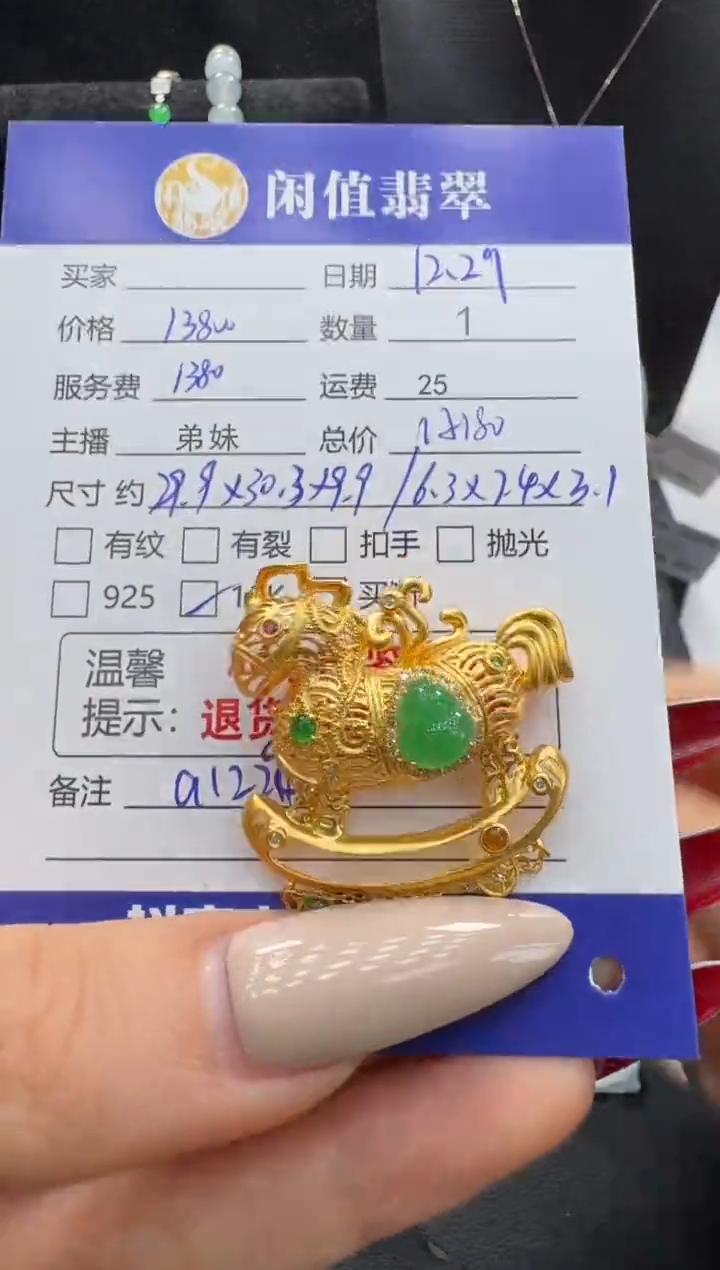 闲值翡翠
买家 日期 12.29
价格 13800 数量 1
服务费 1380 运费 25
主播 弟妹 总价
尺寸 约 29.9×30.3×9.9 / 6.3×7.4×3.1
有纹 有裂 扣手 抛光
925
温馨
提示： 退货
备注 a122